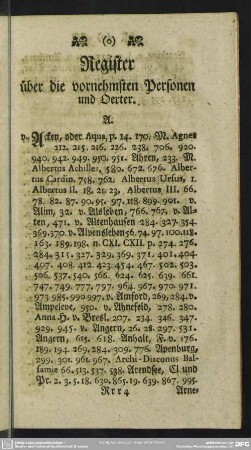 (o)
Register
über die vornehmsten Personen
und Oerter.
A.
v. Acken, oder Aquis, p. 14. 170. M. Agnes
212. 215. 216. 226. 238. 706. 920.
940. 942. 949. 950. 951. Ahren, 233. M.
Albertus Achilles, 580. 672. 676. Alber-
tus Cardin. 758. 762. Albertus Ursus, 1.
Albertus II. 18. 21. 23. Albertus III. 66.
78. 82. 87. 90. 95. 97. 118. 899. 901. v.
Alim, 32. v. Alsleben, 766. 767. v. Al-
ten, 471. v. Altenhausen 284. 327. 354.
369. 370. v. Alvensleben 56. 74. 97. 100. 118.
163. 189. 198. n. CXI. CXII. p. 274. 276.
284. 315. 327. 329. 369. 371. 401. 404.
407. 408. 412. 423. 454. 467. 502. 503.
506. 537. 540. 565. 624. 625. 639. 661.
747. 749. 777. 797. 964. 967. 970. 971.
973. 985. 990. 997. v. Amford, 269. 284. v.
Ampeleve, 950. v. Ahnefeld, 278. 280.
Anna H. v. Bresl. 207. 234. 346. 347.
929. 945. v. Angern, 26. 28. 297. 531.
Angern, 615. 618. Anhalt, F. v. 176.
189. 194. 269. 284. 309. 776. Apenburg,
299. 301. 961. 967. Archi-Diaconus Bal-
samiæ 66. 513. 537. 538. Arendsee, Cl. und
Pr. 2. 3. 5. 18. 630. 865. 19. 639. 867. 995.
Rrr 4 Arne-